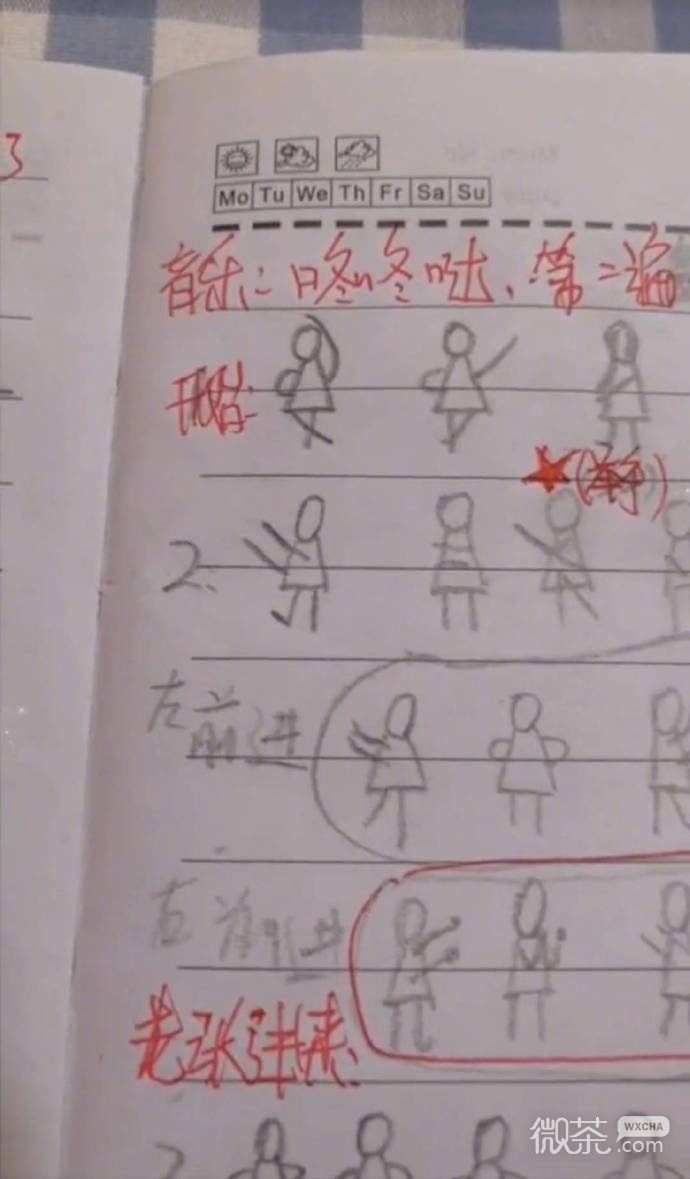 3
Mo Tu We Th Fr Sa Su
音乐：咚咚哒、第二遍
开始：
2.
左前进
右前进
老张进来、
2
微茶 WXCHA .com